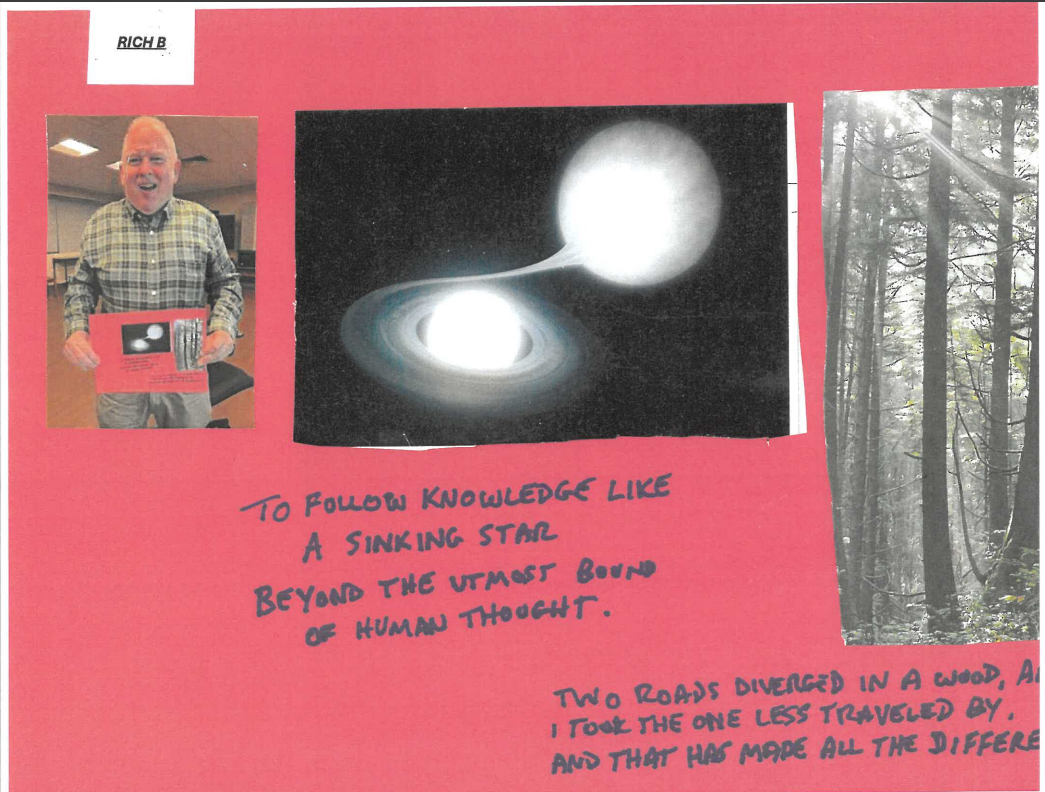 RICH B
TO FOLLOW KNOWLEDGE LIKE
A SINKING STAR
BEYOND THE UTMOST BOUND
OF HUMAN THOUGHT.
TWO ROADS DIVERGED IN A WOOD, A
I TOOK THE ONE LESS TRAVELED BY.
AND THAT HAS MADE ALL THE DIFFERE